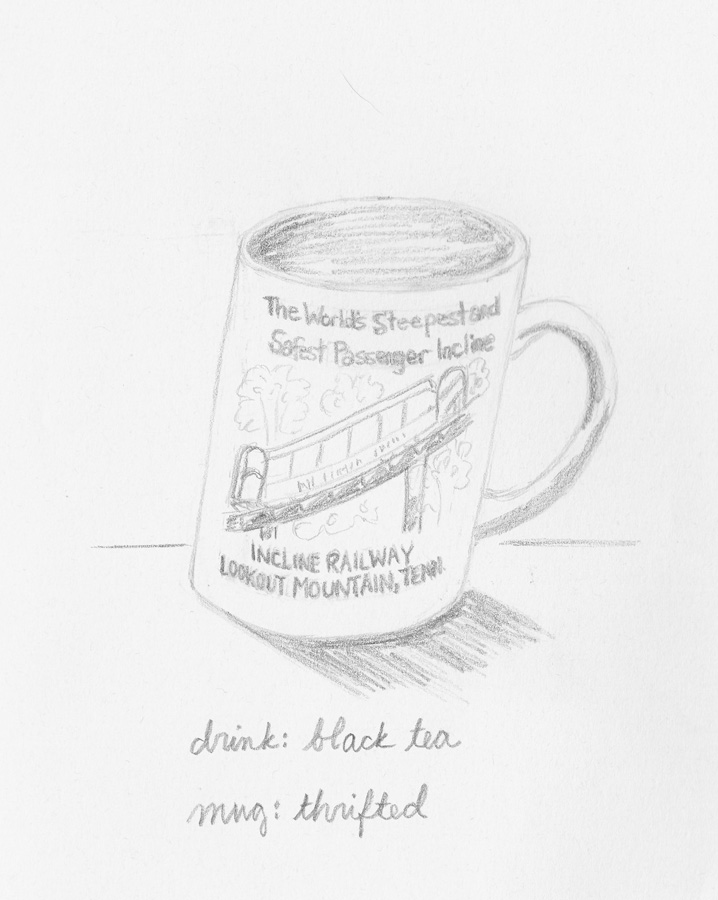 The World's Steepest and
Safest Passenger Incline
INCLINE RAILWAY
LOOKOUT MOUNTAIN, TENN.
drink: black tea
mug: thrifted